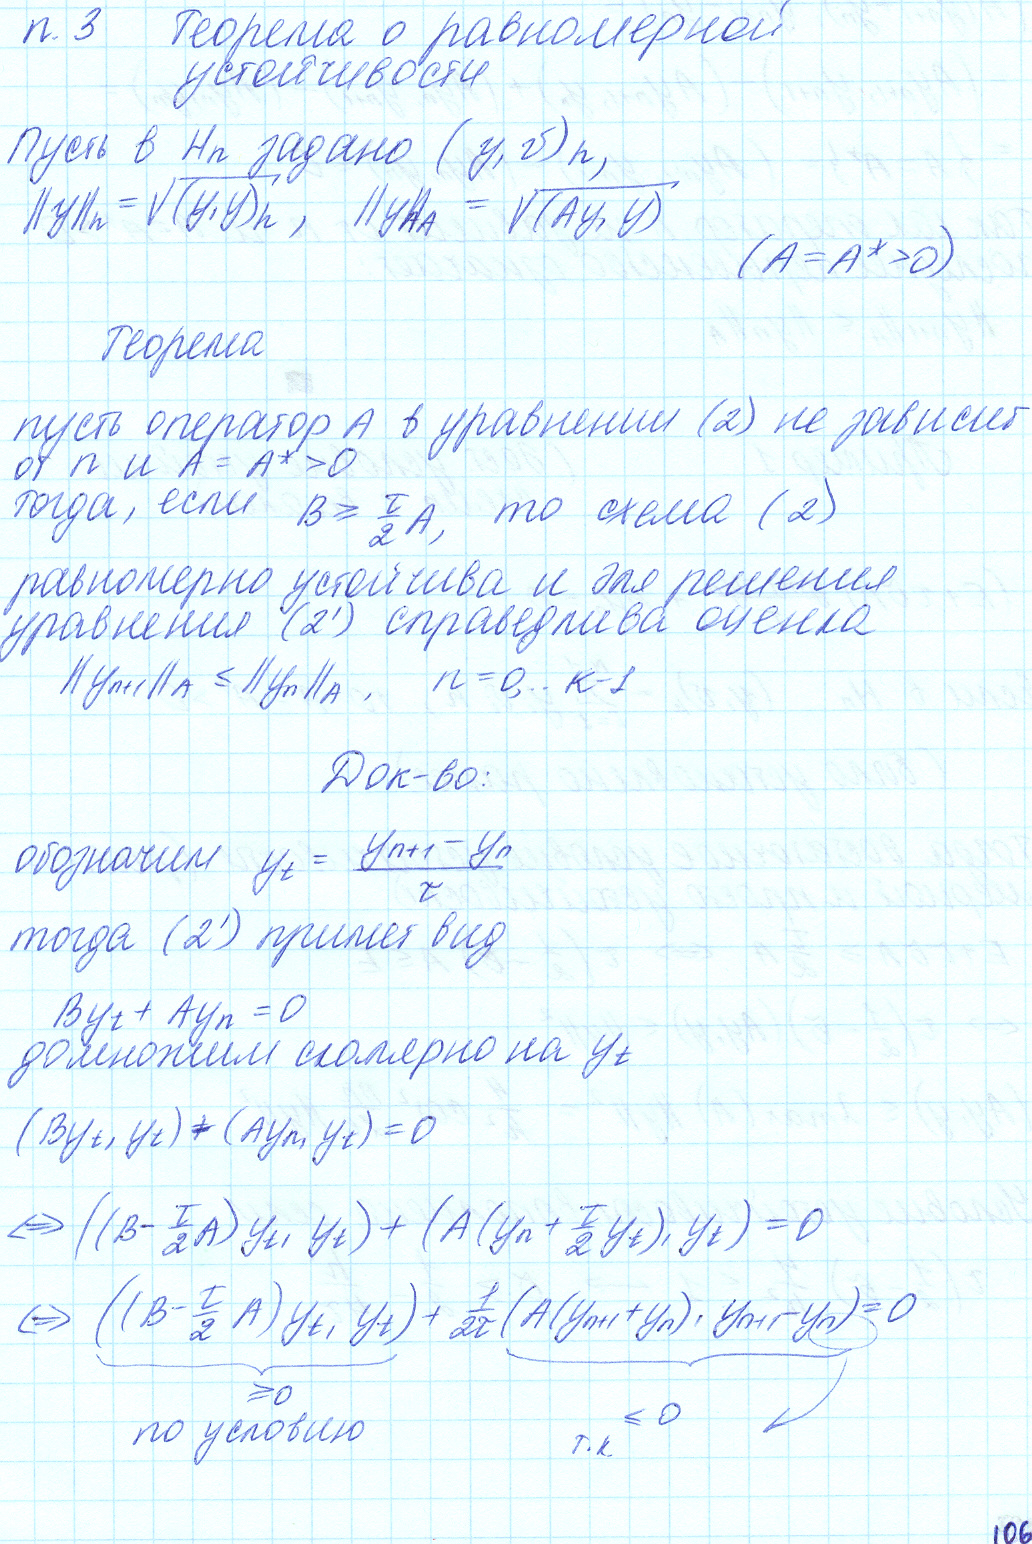 п. 3 Теорема о равномерной
устойчивости
Пусть в Hn задано (y, v)n,
||y||n = √(y,y)n, ||y||A = √(Ay, y)
(A = A* > 0)
Теорема
пусть оператор A в уравнении (2) не зависит
от n и A = A* > 0
тогда, если B ≥ τ/2 A, то схема (2)
равномерно устойчива и для решения
уравнения (2') справедлива оценка
||yn+1||A ≤ ||yn||A, n = 0,.. K-1
Док-во:
обозначим yt = (yn+1 - yn)/τ
тогда (2') примет вид
Byt + Ayn = 0
домножим скалярно на yt
(Byt, yt) + (Ayn, yt) = 0
⇔ ((B - τ/2 A) yt, yt) + (A(yn + τ/2 yt), yt) = 0
⇔ ((B - τ/2 A) yt, yt) + 1/2τ (A(yn+1 + yn), yn+1 - yn) = 0
≥0
по условию
≤ 0
т.к
106